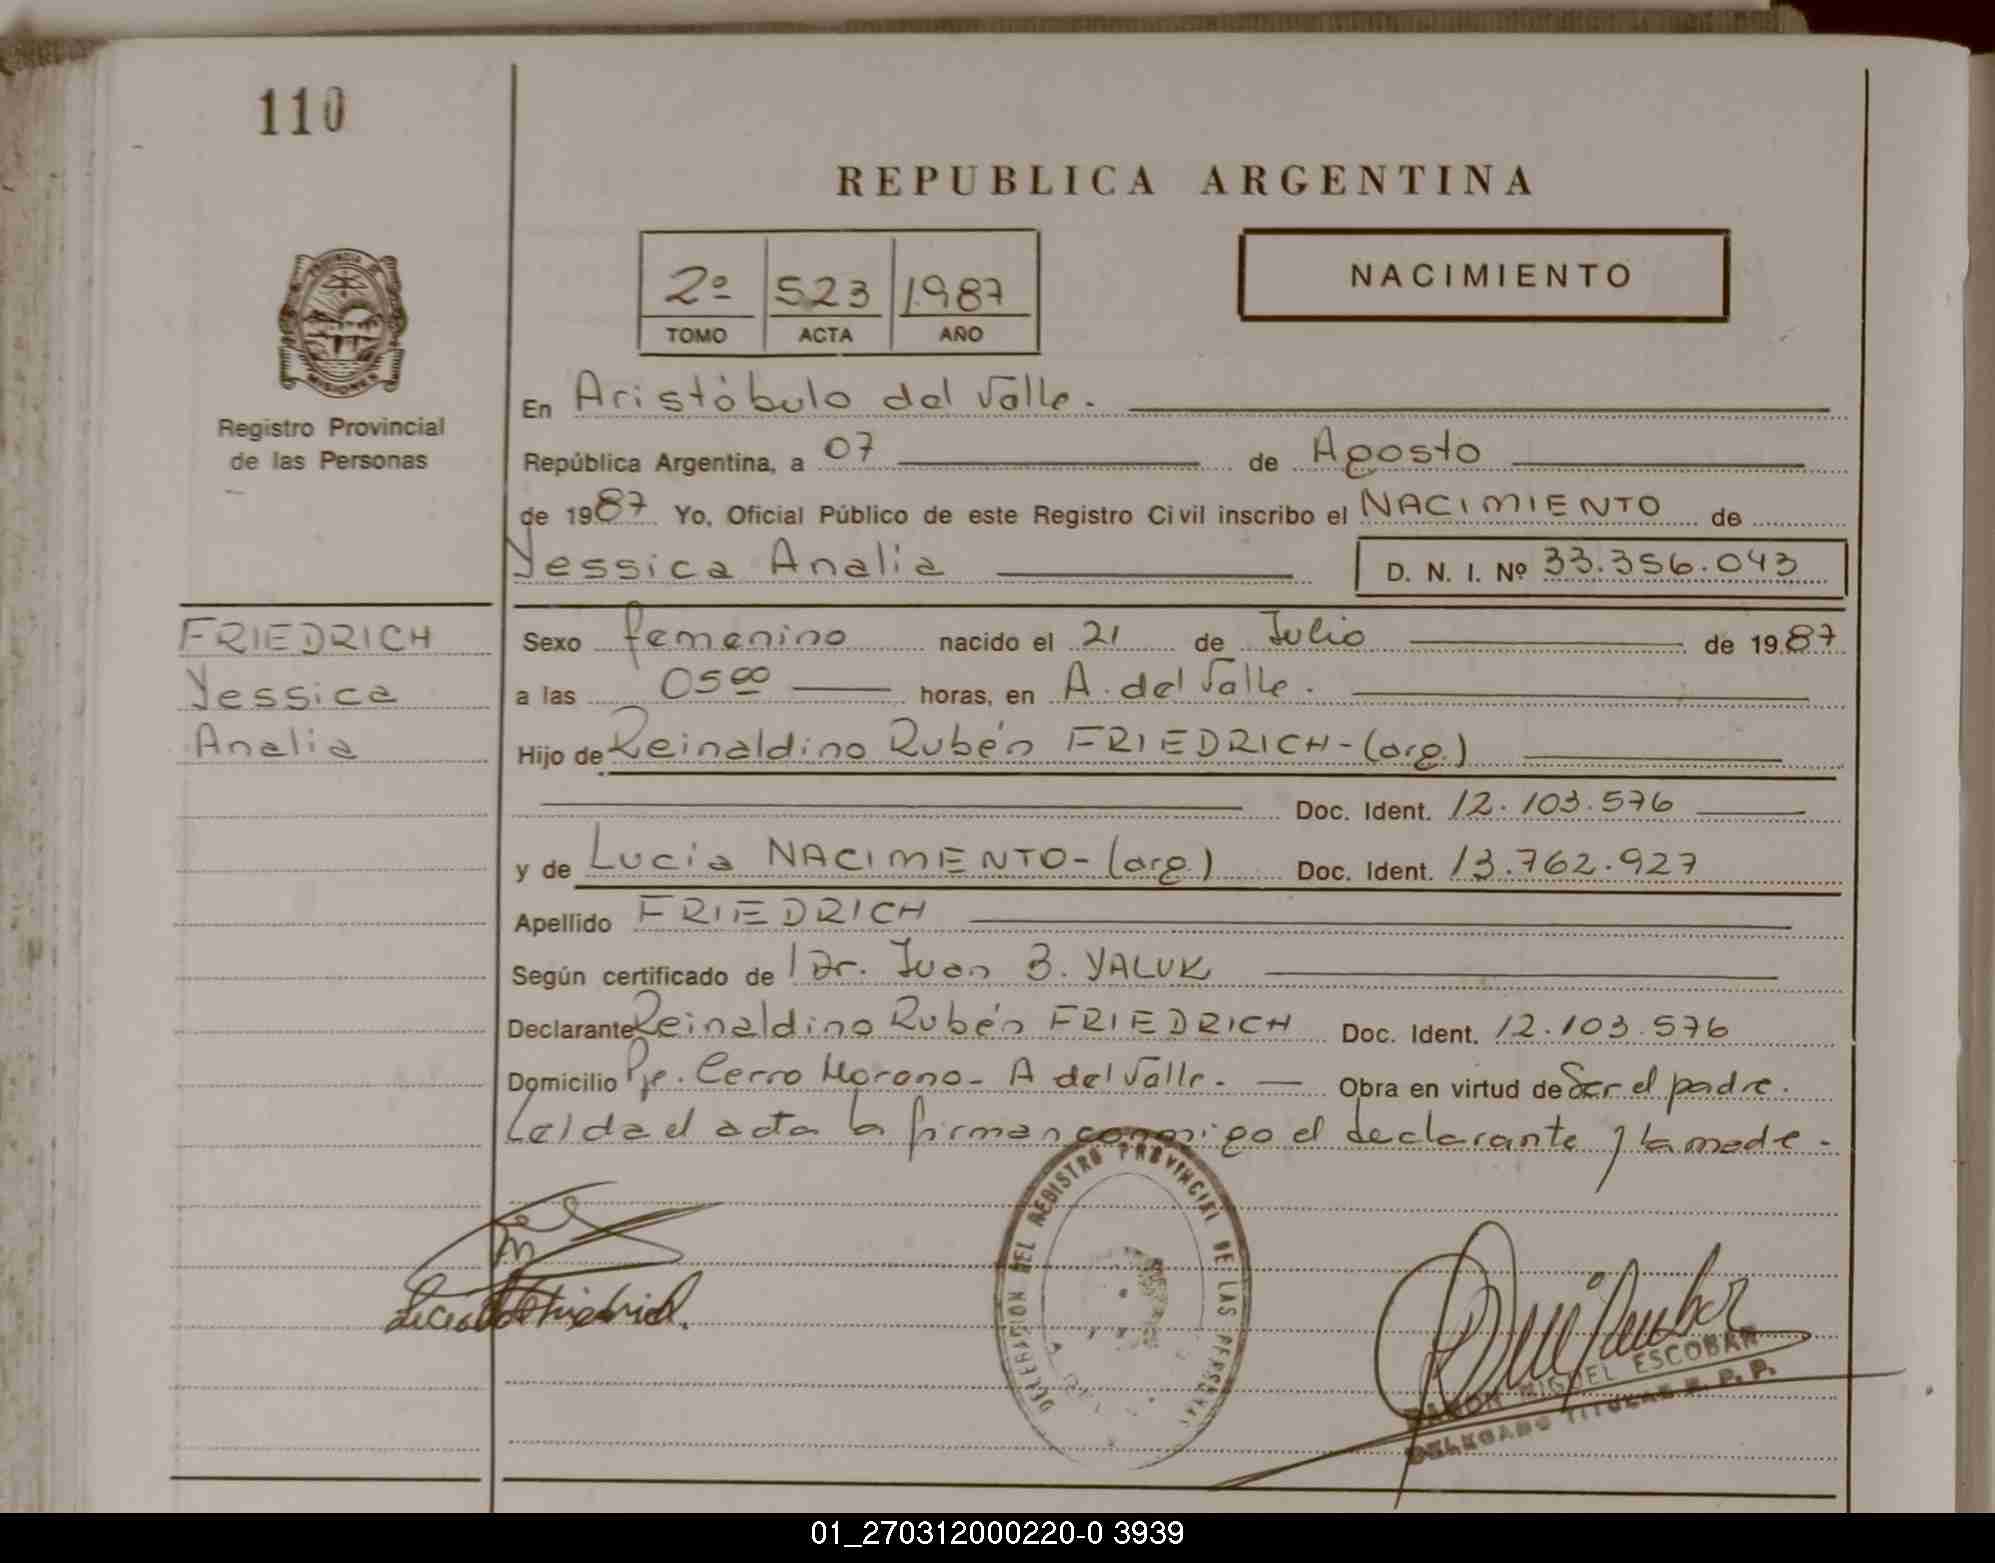 110
REPUBLICA ARGENTINA
PROVINCIA DE
MISIONES
Registro Provincial
de las Personas
2º 523 1987
TOMO ACTA AÑO
NACIMIENTO
En Aristóbulo del Valle.
República Argentina, a 07 de Agosto
de 1987 Yo, Oficial Público de este Registro Civil inscribo el NACIMIENTO de
Yessica Analia D. N. I. Nº 33.356.043
FRIEDRICH
Yessica
Analia
Sexo femenino nacido el 21 de Julio de 1987
a las 05 00 horas, en A. del Valle.
Hijo de Reinaldino Rubén FRIEDRICH-(arg.)
Doc. Ident. 12.103.576
y de Lucia NACIMIENTO-(arg.) Doc. Ident. 13.762.927
Apellido FRIEDRICH
Según certificado de Dr. Juan B. YALUK
Declarante Reinaldino Rubén FRIEDRICH Doc. Ident. 12.103.576
Domicilio Pje. Cerro Morono- A del Valle. Obra en virtud de Ser el padre.
Leida el acta la firman conmigo el declarante y la madre.
DELEGACION DEL REGISTRO PROVINCIAL DE LAS PERSONAS
RAMON MIGUEL ESCOBAR
DELEGADO TITULAR R. P. P.
01_270312000220-0 3939